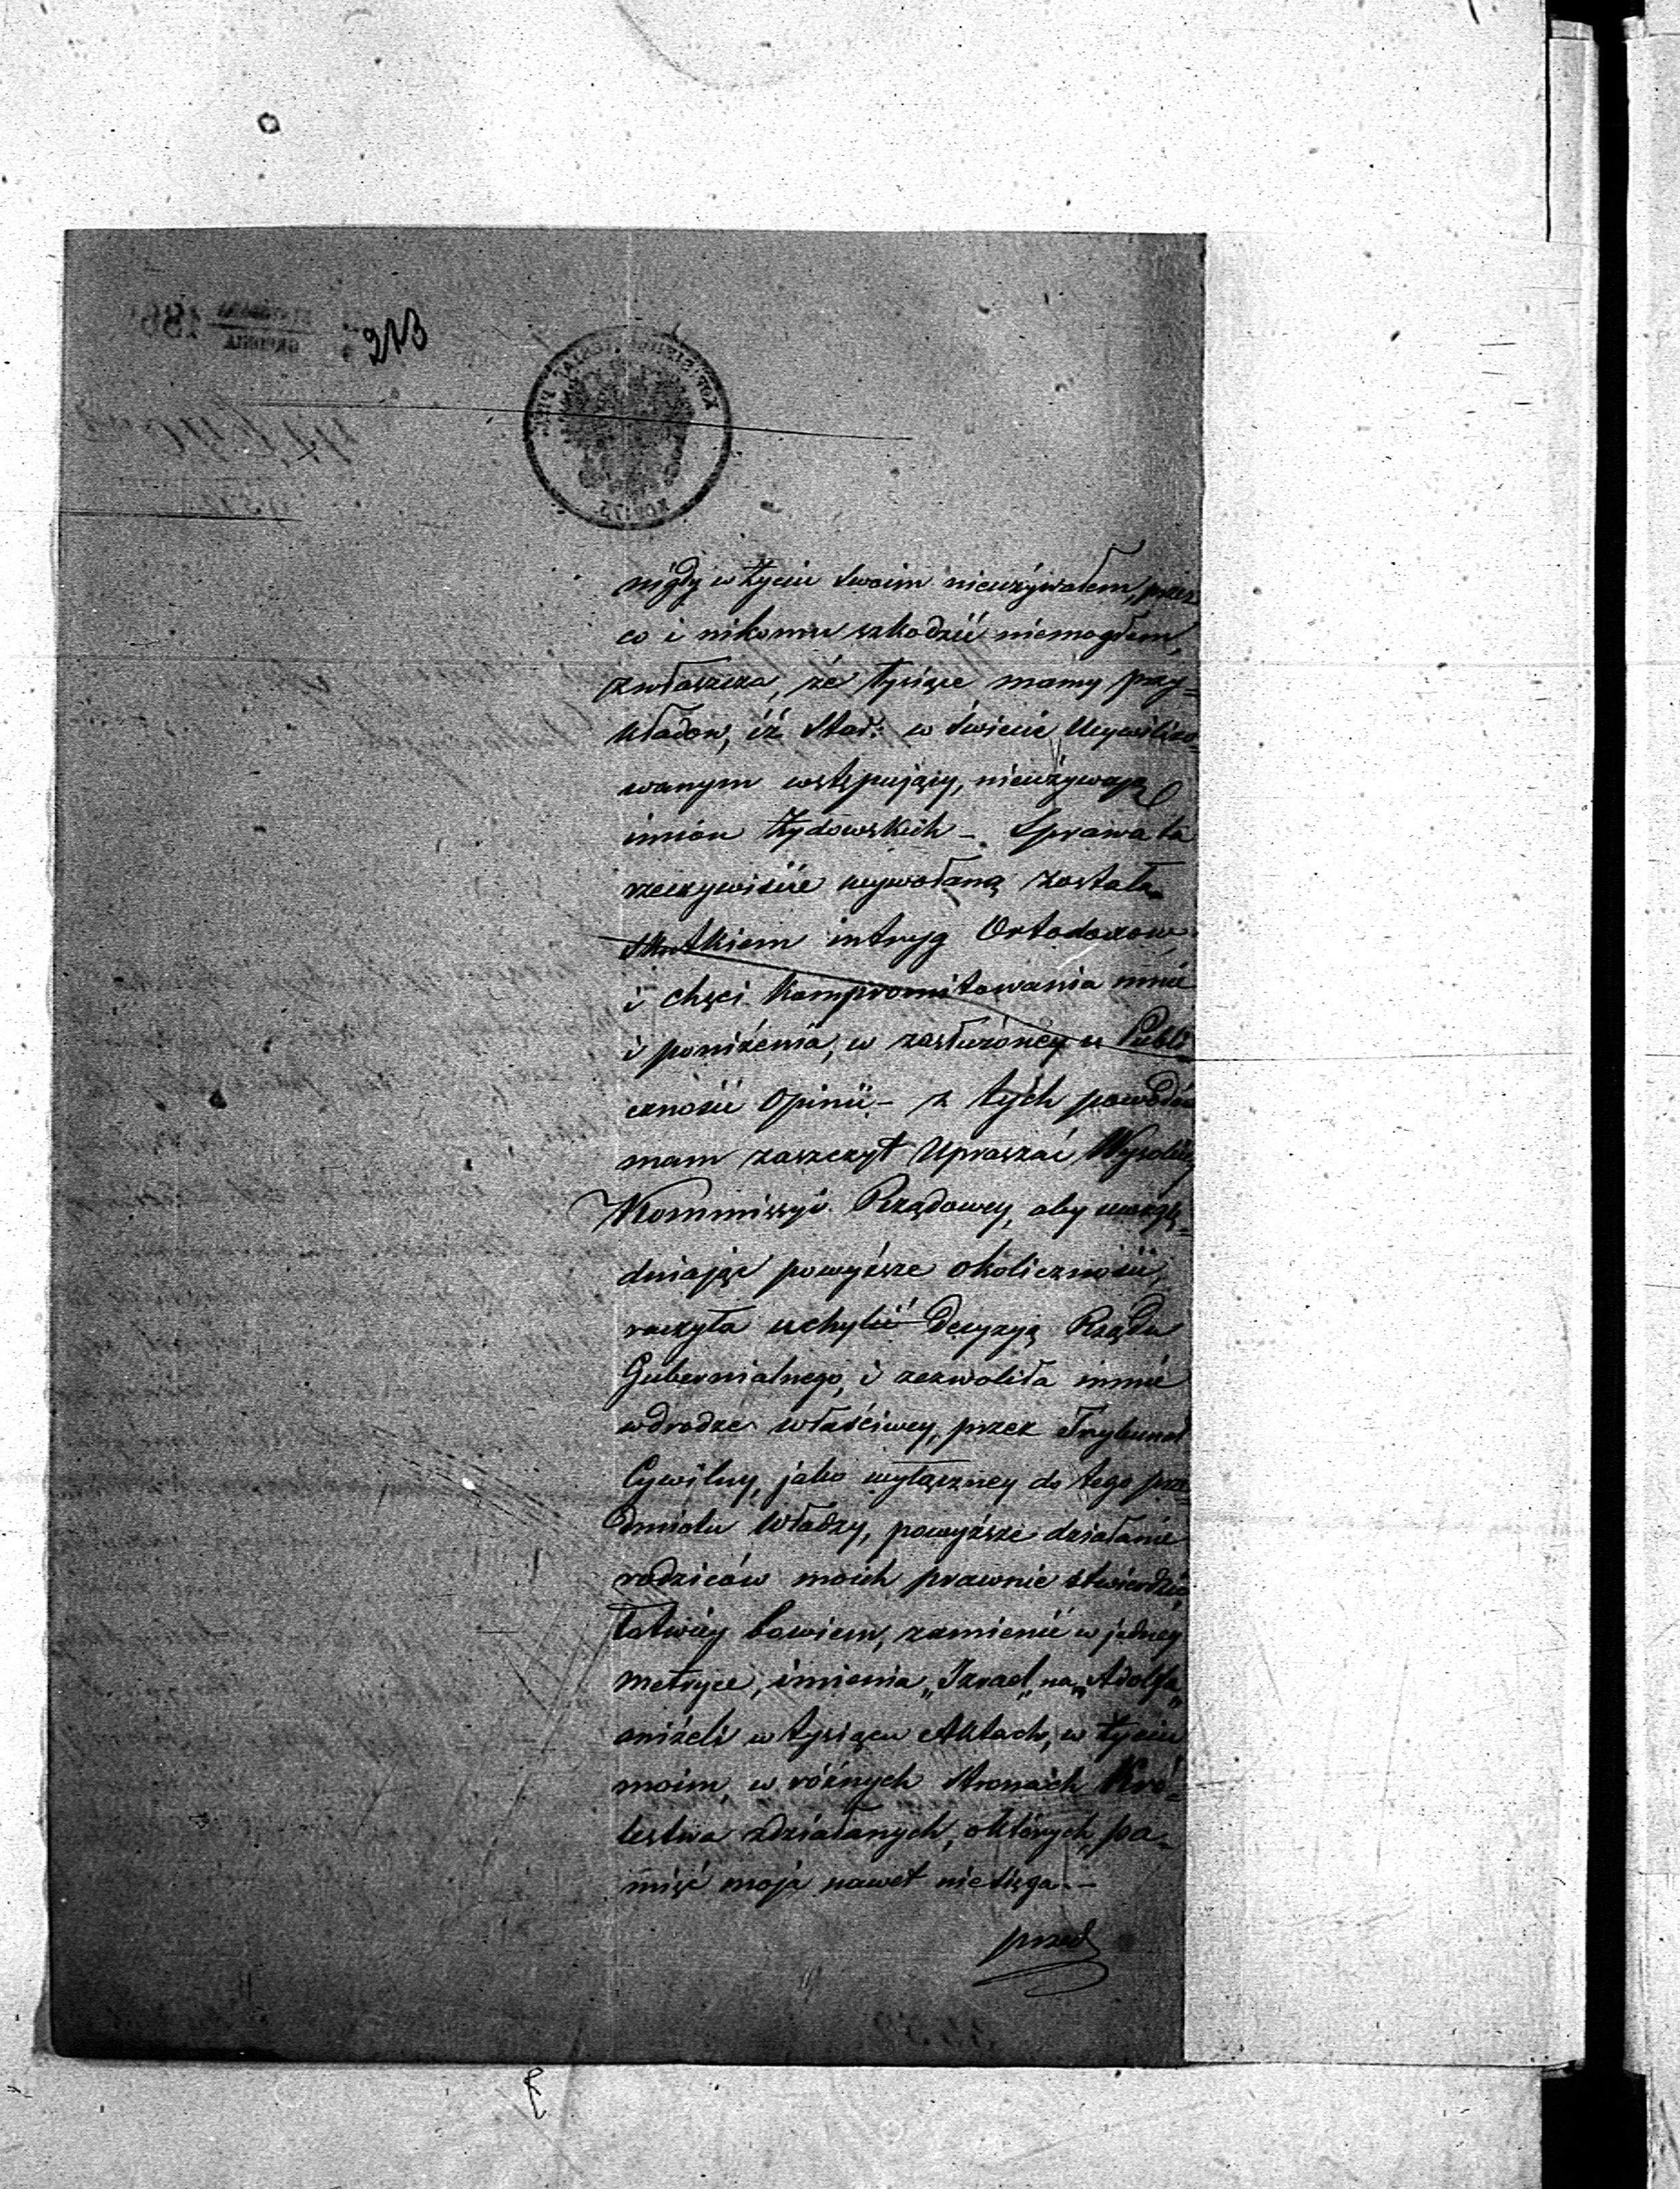 213
nigdy w życiu swoim nieużywałem, przez
co i nikomu szkodzić niemogłem,
zwłaszcza, że tysiące mamy przy-
kładow, iż Star: w świecie ucywilizo-
wanym wstępujący, nieużywają
imion Żydowskich – Sprawa ta
rzeczywiście wywołaną została
skutkiem intryg Ortodoxow
i chęci kompromitowania mnie
i poniżenia, w zasłużoney u Publi-
czności Opinii – z tych powodów
mam zaszczyt upraszać Wysokiey
Kommissyi Rządowey, aby uwzglę-
dniając powyższe okoliczności,
raczyła uchylić decyzyą Rządu
Gubernialnego, i zezwoliła mnie
wdrodze właściwey, przez Trybunał
Cywilny, jako wyłączney do tego prze-
dmiotu Władzy, powyższe działanie
rodziców moich prawnie stwierdzić
łatwiey bowiem, zamienić w jedney
metryce, imienia „Izrael„ na „Adolfa„
aniżeli w tysiącu Aktach, w życiu
moim, w różnych stronach Kró-
lestwa zdziałanych, októrych pa-
mięć moja nawet niesięga. –
przed